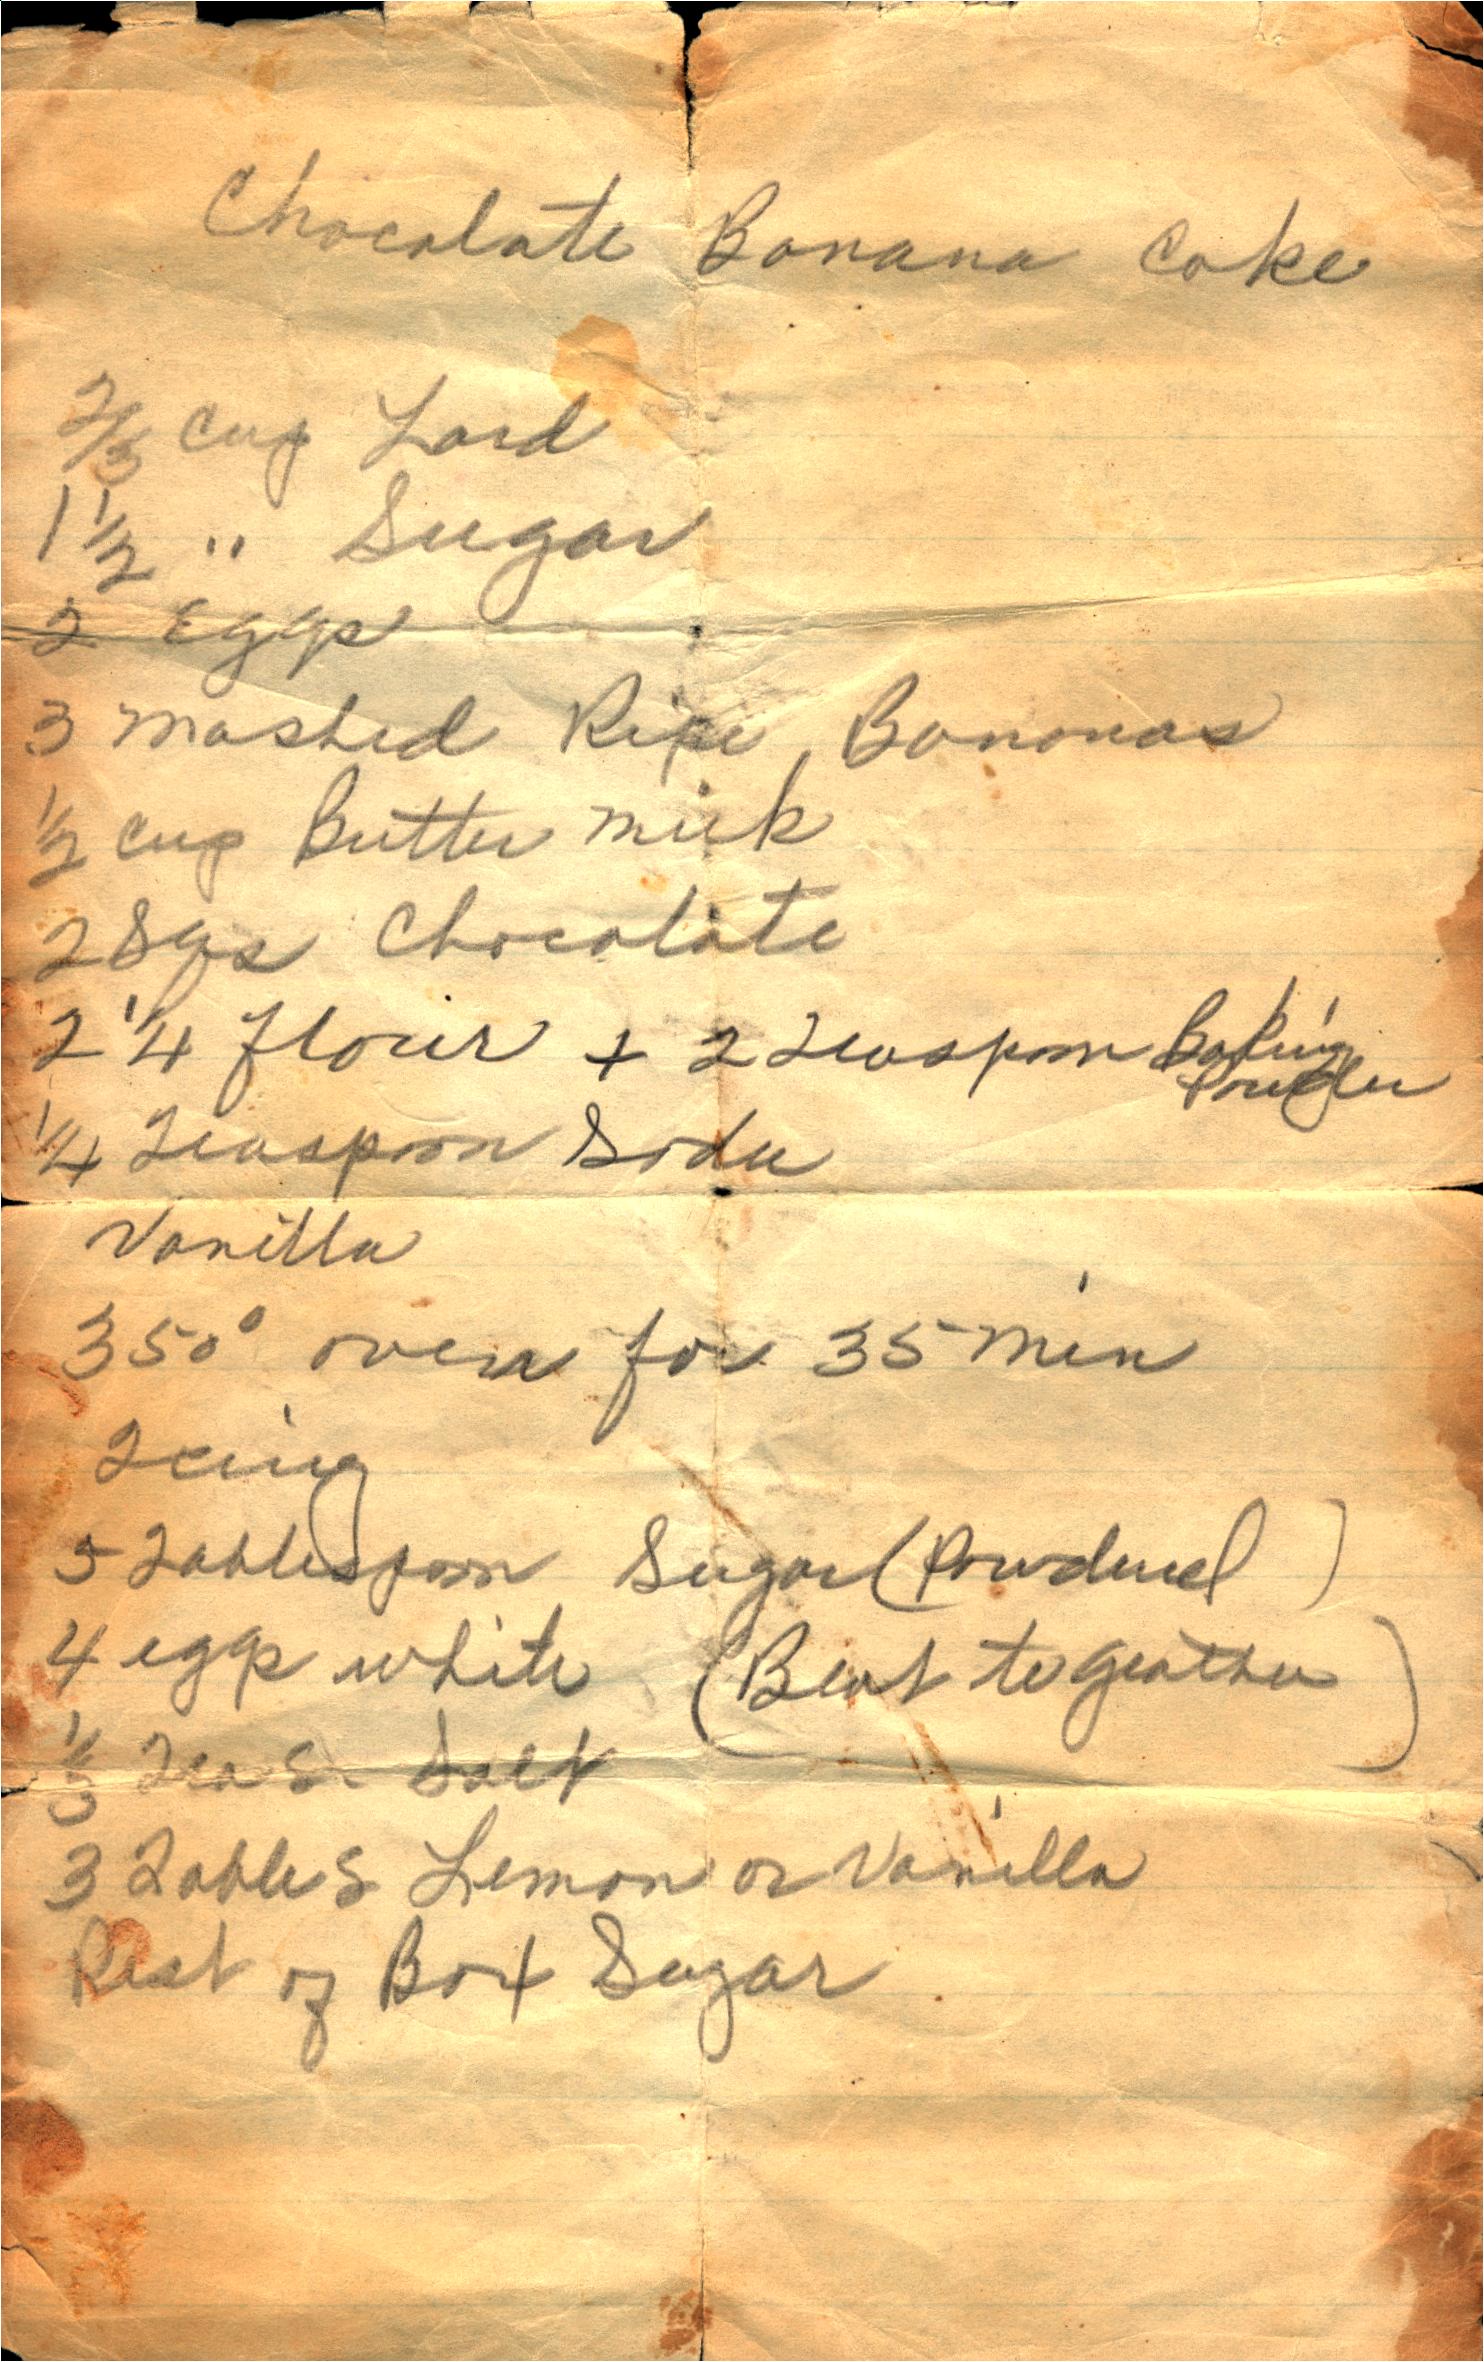 Chocolate Banana Cake
2/3 cup Lard
1 1/2 " Sugar
2 Eggs
3 mashed Ripe Bananas
1/2 cup Butter milk
2 Sqs Chocolate
2 1/4 flour + 2 Teaspoon Baking Powder
1/4 Teaspoon Soda
Vanilla
350° oven for 35 min
Icing
5 Tablespoon Sugar (Powdered)
4 eggs white (Beat to geather)
1/3 Tea S. Salt
3 Table S Lemon or Vanilla
Rest of Box Sugar